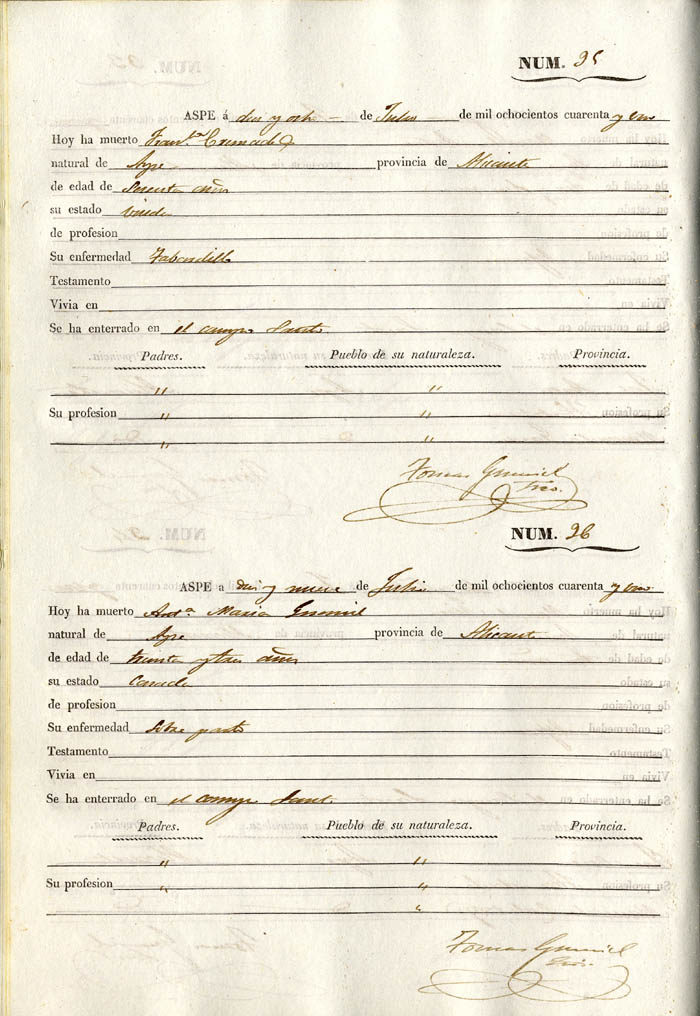 NUM. 95
ASPE á diez y ocho de Julio de mil ochocientos cuarenta y uno
Hoy ha muerto Fran.ca Cremades
natural de Aspe provincia de Alicante
de edad de años
su estado viuda
de profesion
Su enfermedad Tabardillo
Testamento
Vivia en
Se ha enterrado en el campo Santo
Padres. Pueblo de su naturaleza. Provincia.
" "
Su profesion " "
" "
Tomas
NUM. 96
ASPE a diez y nueve de Julio de mil ochocientos cuarenta y uno
Hoy ha muerto Ant.a Maria
natural de Aspe provincia de Alicante
de edad de treinta y tres años
su estado Casada
de profesion
Su enfermedad Sobre parto
Testamento
Vivia en
Se ha enterrado en el campo Santo
Padres. Pueblo de su naturaleza. Provincia.
" "
Su profesion " "
"
Tomas